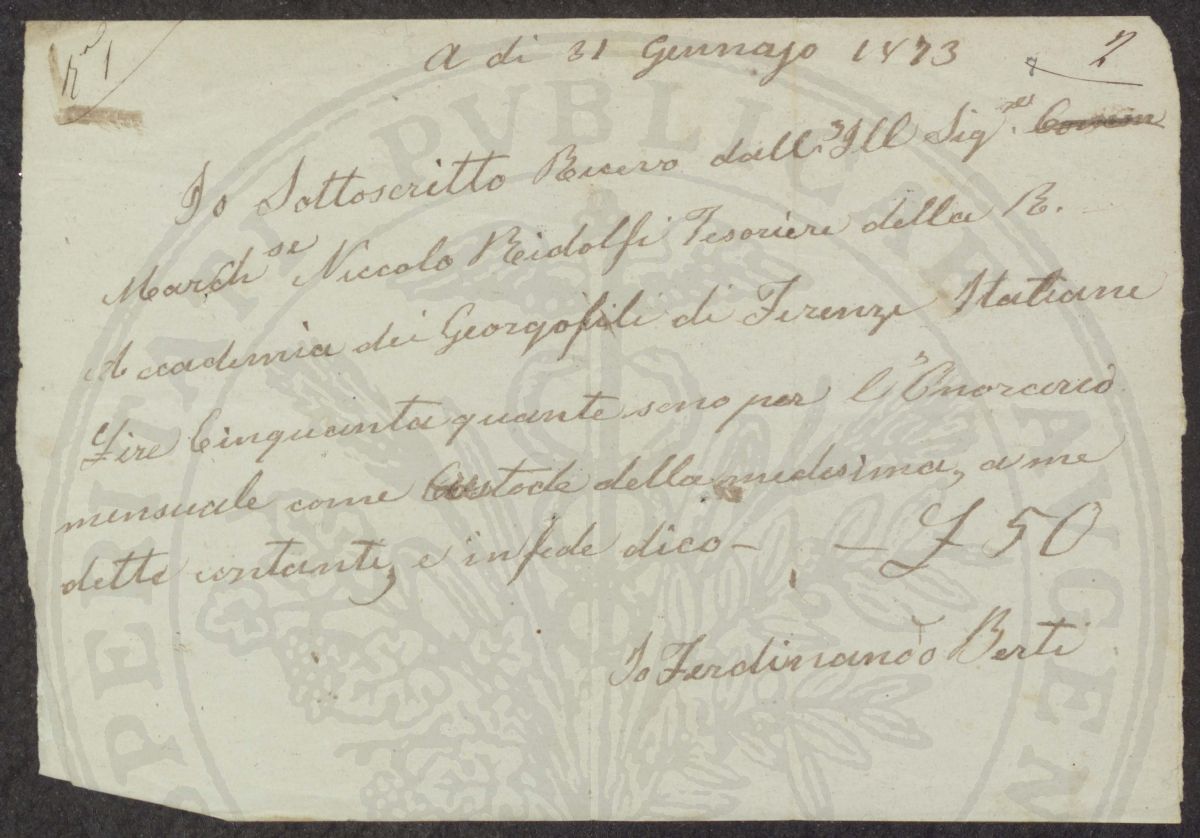 N° 1
A di 31 Gennajo 1873
2
Io Sottoscritto Ricevo dall'Ill Sig.res Comm
March.se Niccolo Ridolfi Tesoriere della R.
Accademia dei Georgofili di Firenze Italiane
Lire Cinquanta quante sono per l'Onorario
mensuale come Custode della medesima, a me
dette contante, e in fede dico — — £ 50
Io Ferdinando Berti
PROSPERITATI PVBLICAE AVGENDAE